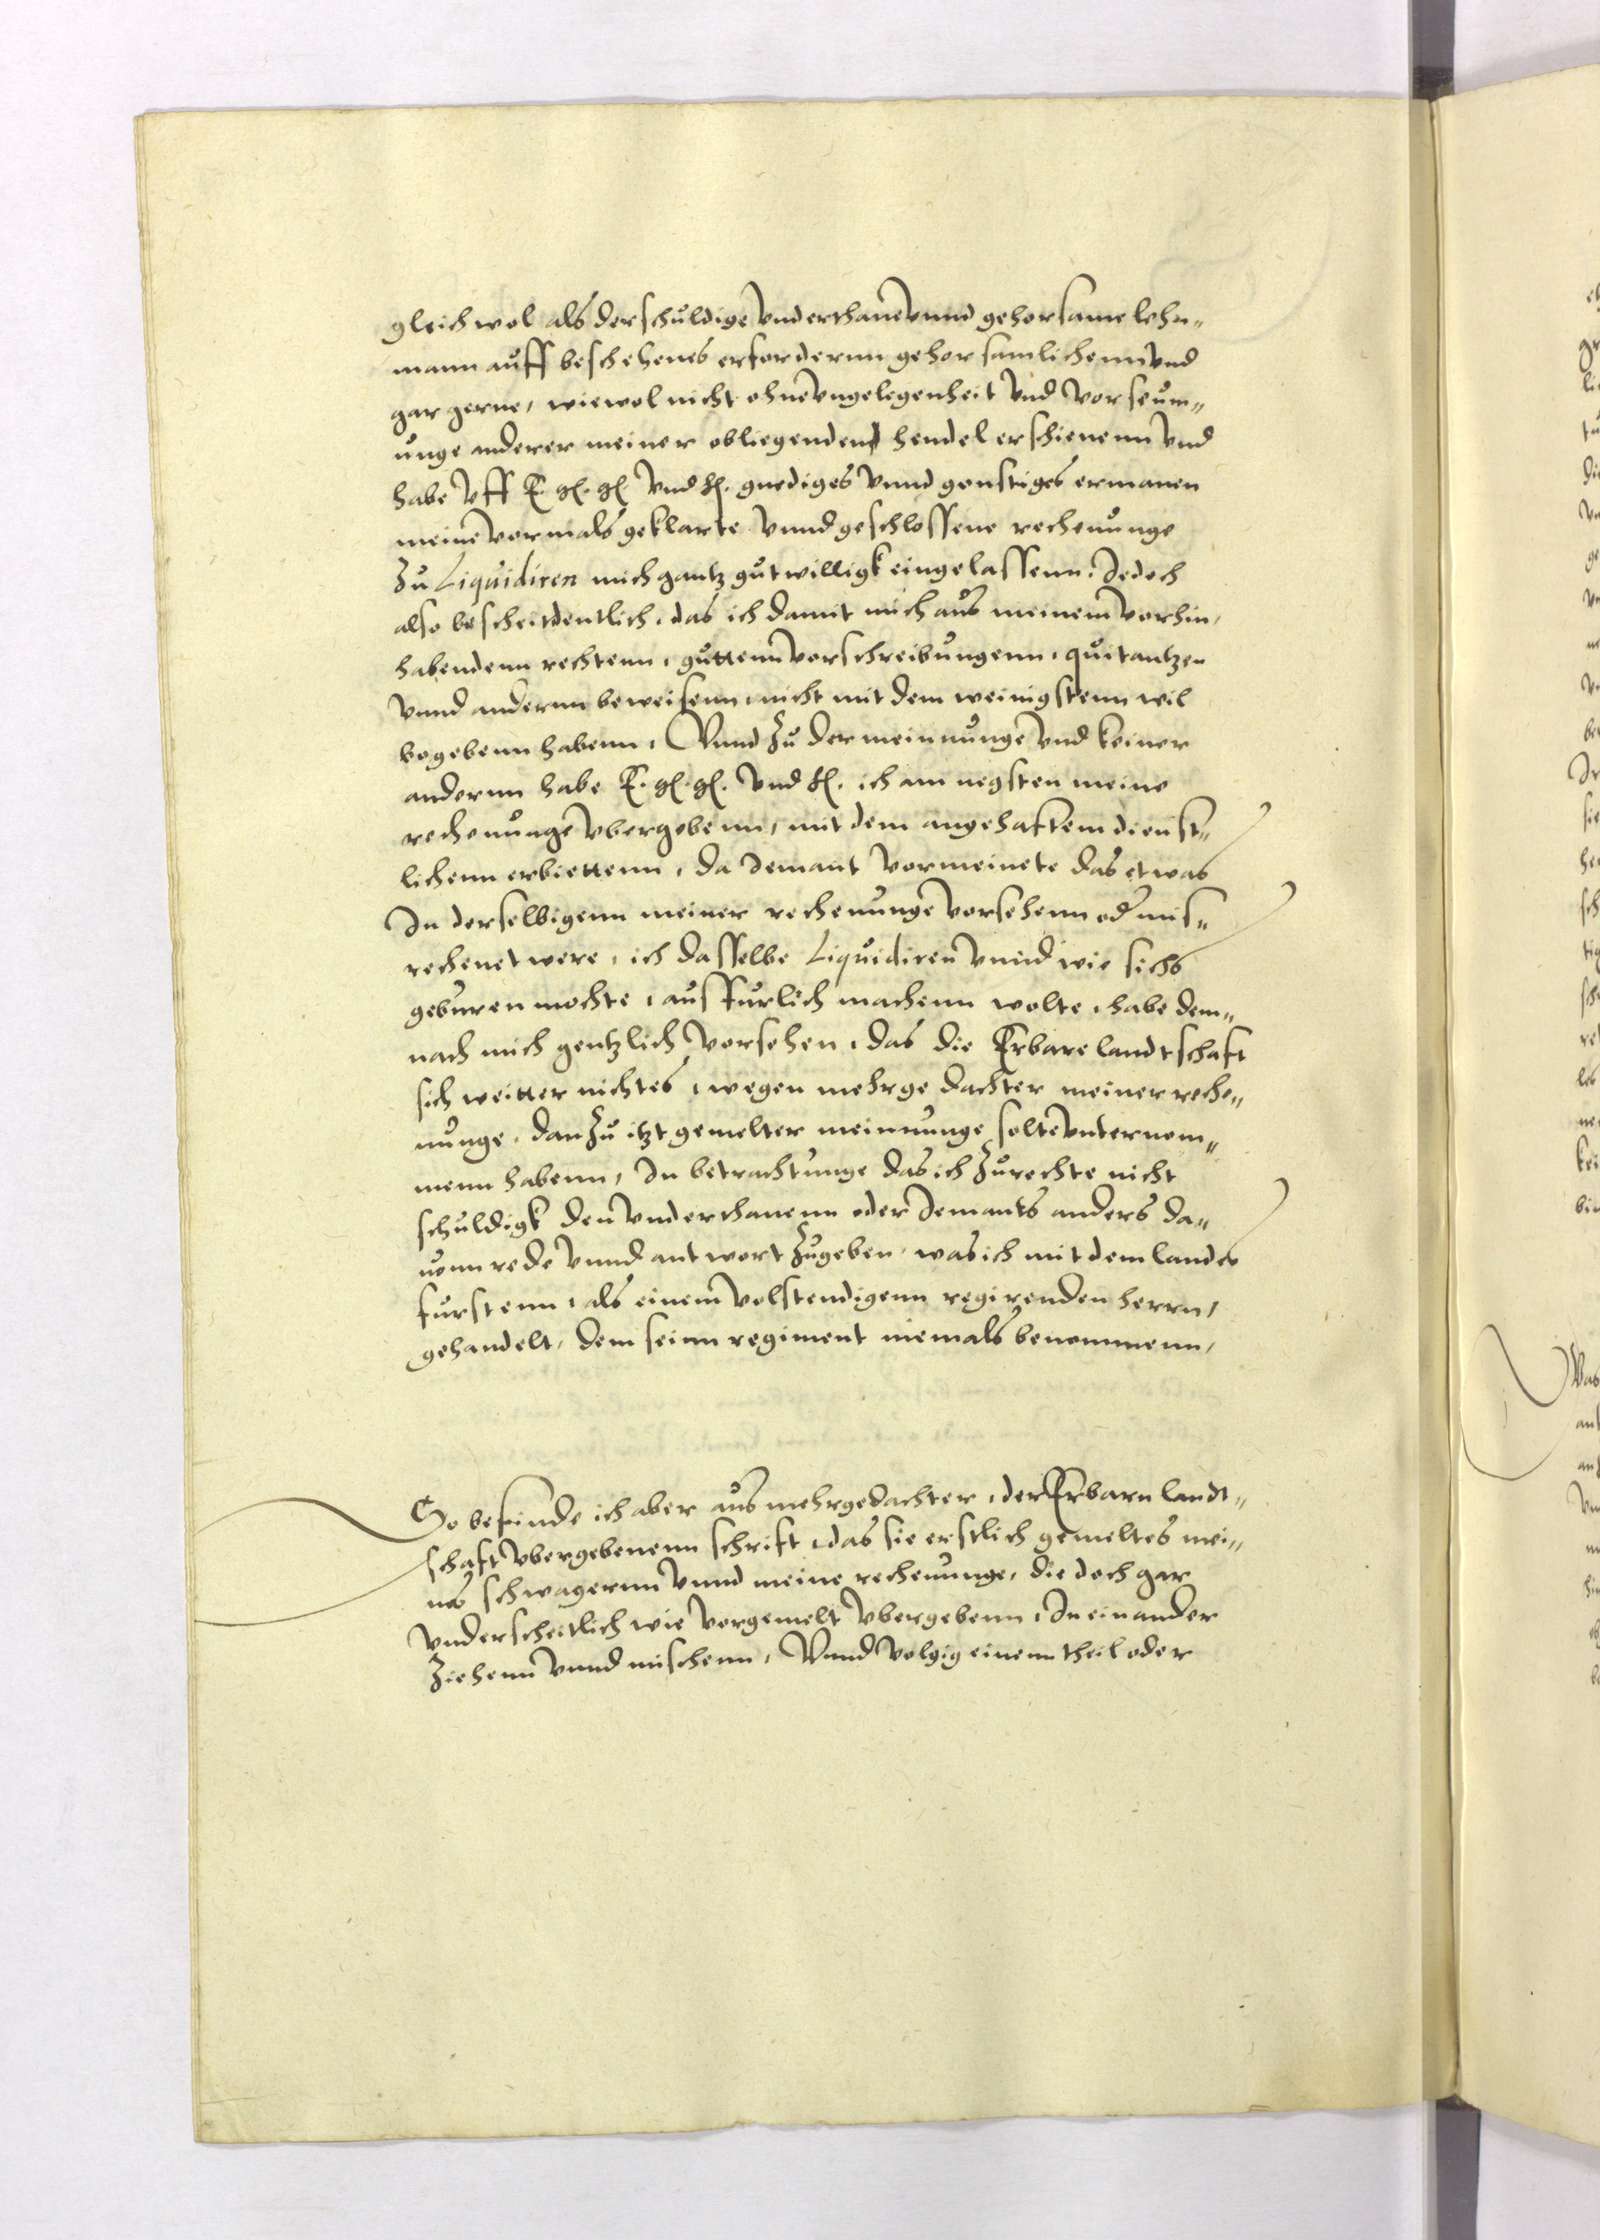 gleich wol als der schuldige vnderthane vnnd gehorsame lehn„
mann auff beschehenes erfordernn gehorsamlichenn vnd
gar gerne, wiewol nicht ohne vngelegenheit vnd vorseum„
unge anderer meiner obliegenden hendel erschienenn vnd
habe vff E. g. g. vnd g. gnediges vnnd gonstiges ermanen
meine vormals geklarte vnnd geschlossene rechenunge
zu Liquidiren mich gantz gutwilligk eingelassenn, Jedoch
also bescheitdentlich, das ich damit mich aus meinem vorhin,
habendenn rechtenn, guttenn vorschreibungenn, quitantzen
vnnd andernn beweisenn, nicht mit dem weinigstenn wil
begebenn habenn, Vnnd zu der meinnunge vnd keiner
andernn habe E. g. g. vnd g. ich am negsten meine
rechenunge vbergebenn, mit dem angehaftem dienst„
lichenn erbiettenn, da Jemant vormeinete das etwas
In derselbigenn meiner rechenunge vorsehenn oder mis„
rechenet were, ich dasselbe Liquidiren vnnd wie sichs
geburen mochte, ausfurlich machenn wolte, habe dem„
nach mich gentzlich vorsehen, das die Erbare landtschaft
sich weitter nichtes, wegen mehrgedachter meiner reche„
nunge, dan zu itzt gemelter meinnunge solte vnternom„
menn habenn, In betrachtunge das ich zurechte nicht
schuldigk den vnderthanenn oder Jemants anders da„
uonn rede vnnd antwort zugeben, was ich mit dem landes
furstenn, als einem volstendigenn regirenden herrn,
gehandelt, dem seinn regiment niemals benommenn,
So befinde ich aber aus mehrgedachter, der Erbarn landt„
schaft vbergebenenn schrift, das sie erstlich gemeltes mei„
nes schwagernn vnnd meine rechenunge, die doch gar
vnderscheitlich wie vorgemelt vbergebenn, In einander
ziehenn vnnd mischenn, Vnnd volgig einenn theil oder